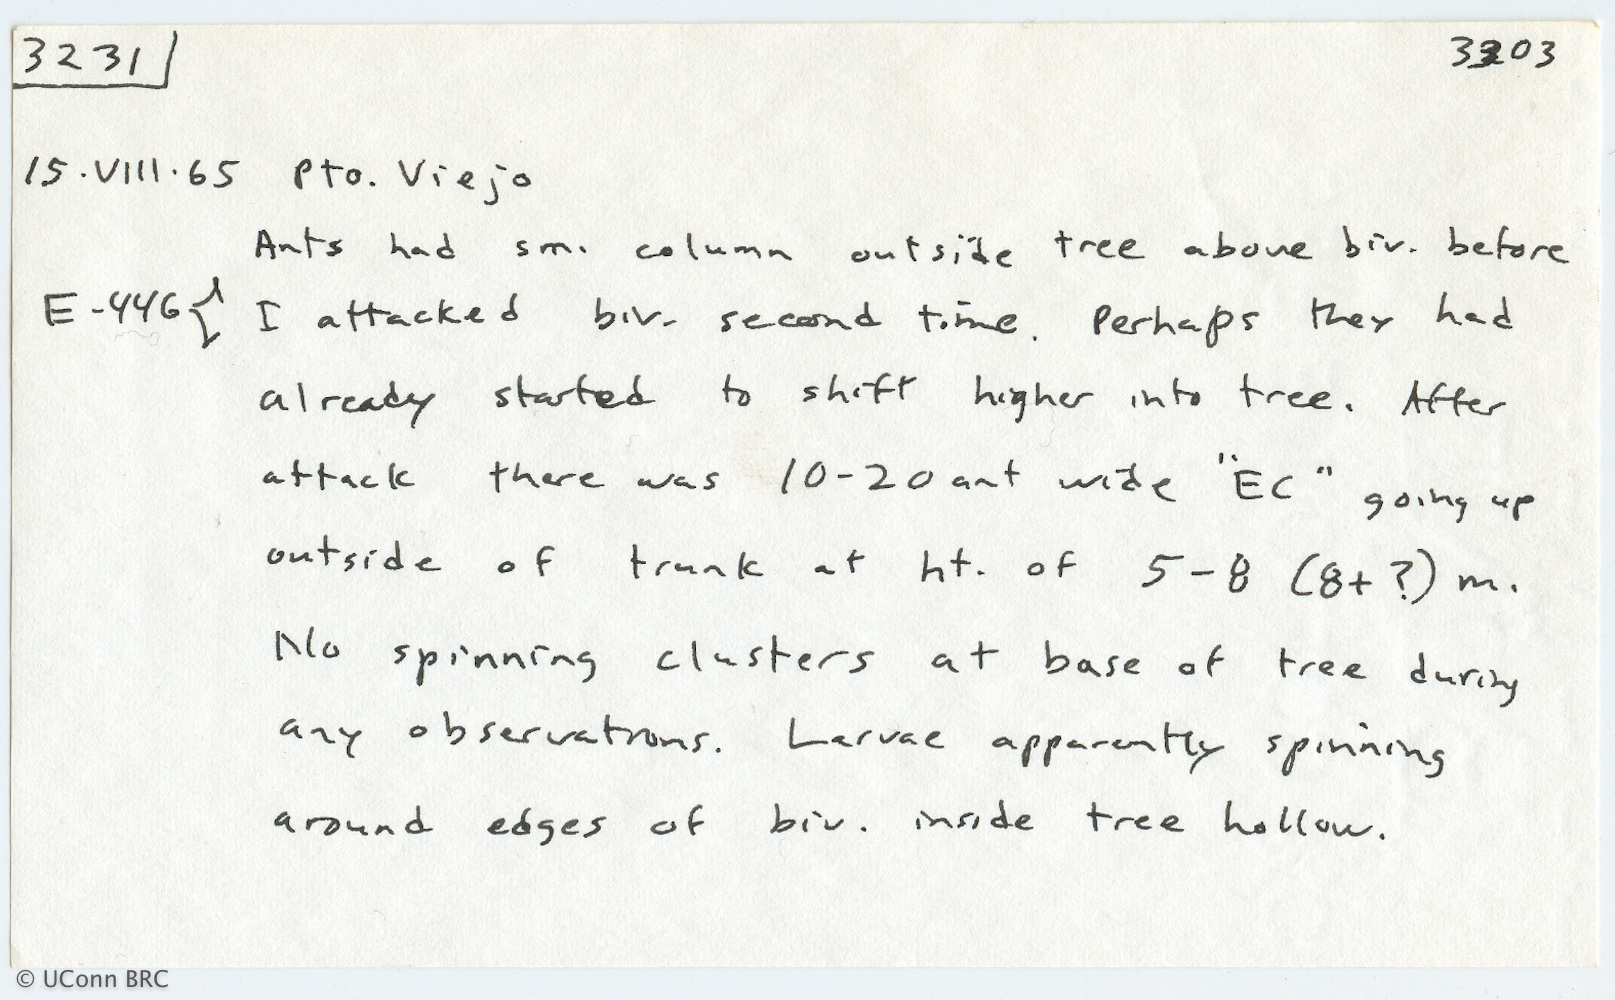 3231 3203
15.VIII.65 Pto. Viejo
Ants had sm. column outside tree above biv. before
E-446{ I attacked biv. second time. Perhaps they had
already started to shift higher into tree. After
attack there was 10-20 ant wide "EC" going up
outside of trunk at ht. of 5-8 (8+?) m.
No spinning clusters at base of tree during
any observations. Larvae apparently spinning
around edges of biv. inside tree hollow.
© UConn BRC